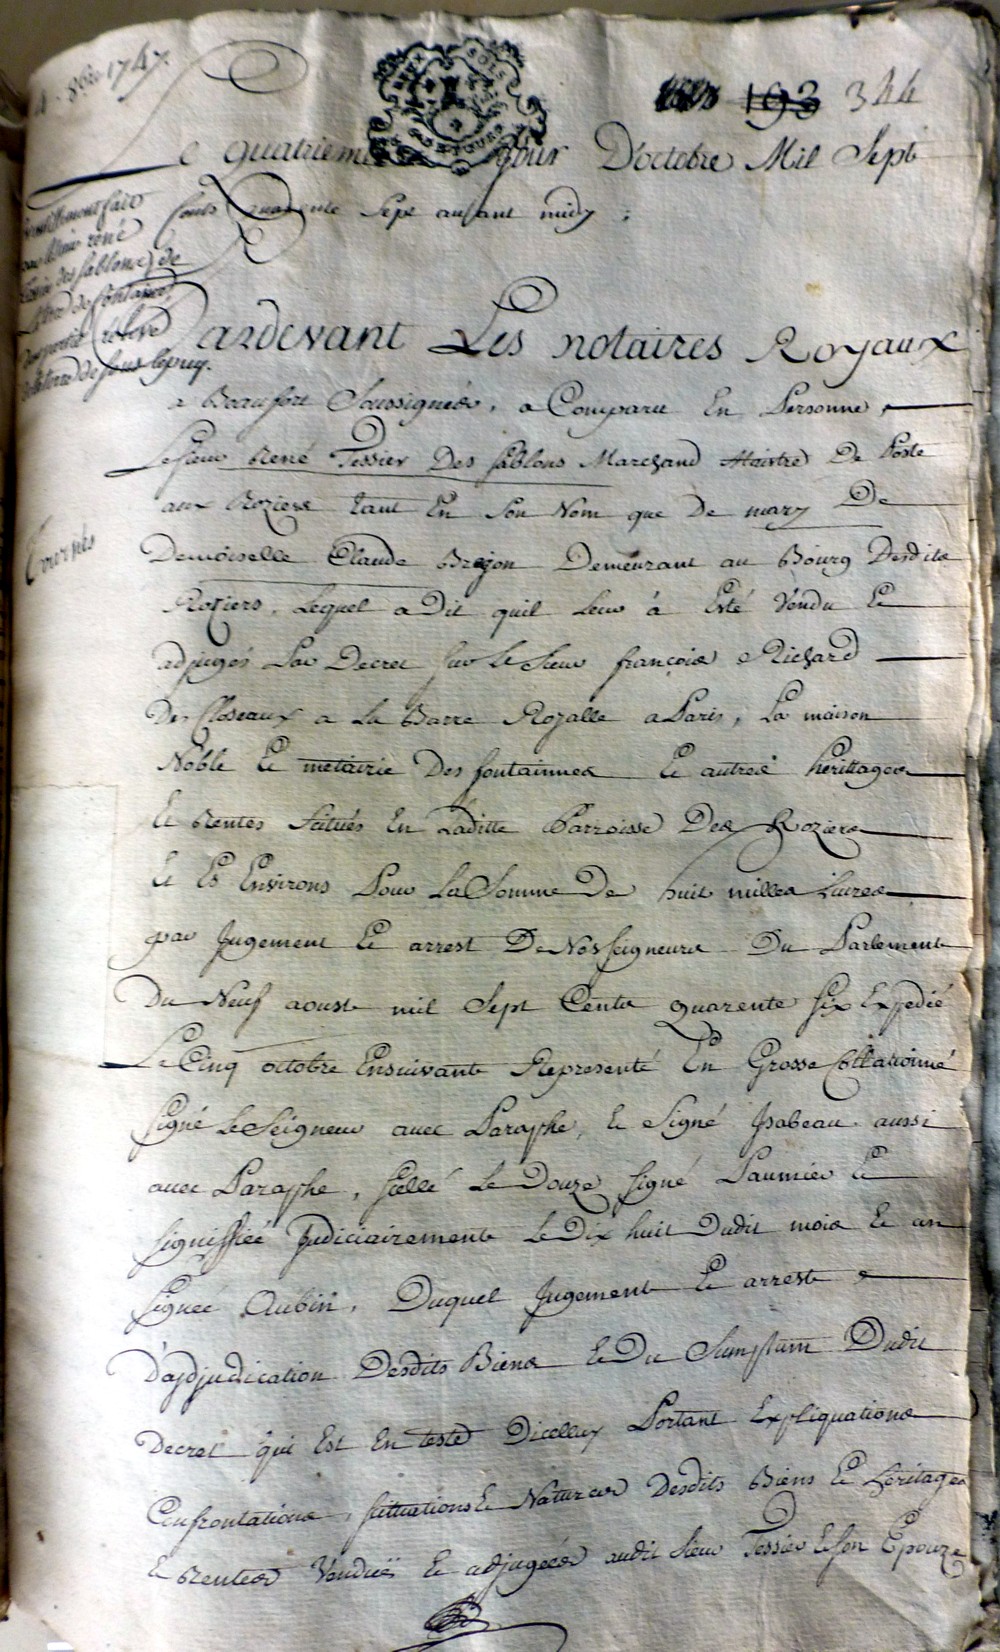 4. 8bre 1747.
193 344
DEUX SOLS
Le quatrieme Jour D'octobre Mil Sept
Cents Quarente Sept avant midy ;
fait
rené
des sablons de
de fontaines
relevé
Tournés
Pardevant Les notaires Royaux
a Beaufort Soussignés, a Comparu En Personne,
Le sieur René Tessier Des sablons Marchand Maistre De Poste
aux Roziers tant En Son Nom que De mary De
Demoiselle Claude Brejon Demeurant au Bourg Desdits
Roziers, Lequel a Dit quil Leur à Esté Vendu Et
adjugés Par Decret sur Le Sieur françois Richard
Des Closeaux a La Barre Royalle a Paris, La maison
Noble Et metairie Des fontainnes Et autres herittages
Et Rentes Scitués En Laditte Parroisse Des Roziers
Et Es Environs Pour La Somme De huit milles Livres
par Jugement Et arrest De Nosseigneurs Du Parlement
Du Neuf aoust mil Sept Cents quarente Six Expedié
Le Cinq octobre Ensuivant Representé En Grosse Collationné
signé Le Seigneur avec Paraphe, Et Signé Isabeau aussi
avec Paraphe, scellé Le Douze signé Paumier Et
signiffiée Judiciairement Le Dix huit Dudit mois Et an
signée Aubin, Duquel Jugement Et arrest
D'adjudication Desdits Biens Et Du Sumptum Dudit
Decret qui Est En teste Dicelluy Portant Expliquations
Confrontations, scittuations Et Natures Desdits Biens Et heritages
Et Rentes Venduës Et adjugées audit Sieur Tessier Et son Epouze